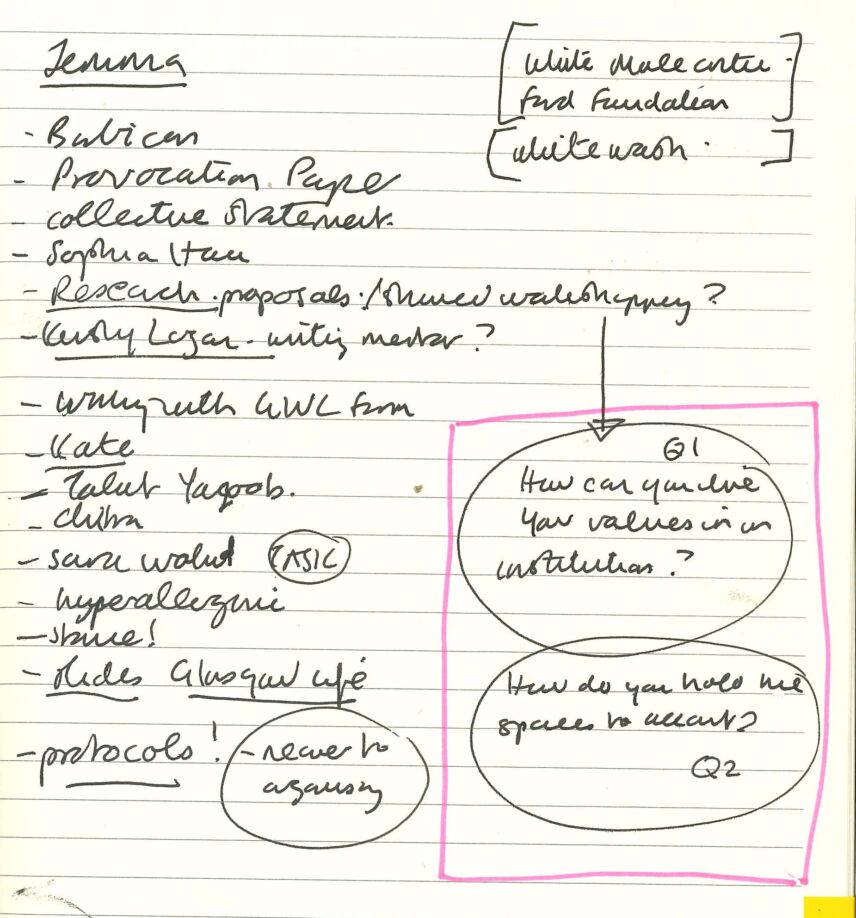 Jemma
[White Male centre.
Ford Foundation]
[Whitewash.]
- Barbican
- Provocation Paper
- collective statement.
- Sophia
- Research. proposals. / shared workshopping?
- Lagan. writing mentor?
- working with GWL from
- Kate
- Talat Yaqoob.
- Chitra
- sara
- hyperallergic
- share!
- slides Glasgow Life
- protocols! -
Q1
How can you live
your values in an
institution?
How do you hold the
spaces to account?
Q2